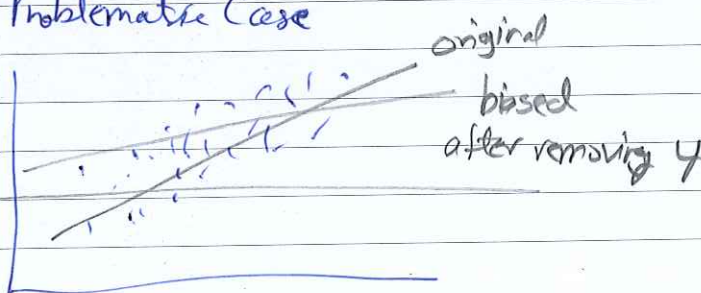 Problematic Case
original
biased
after removing y